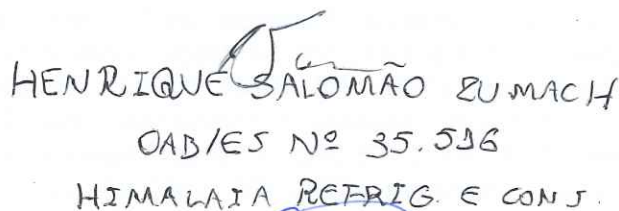 HENRIQUE SALOMÃO ZUMACH
OAB/ES Nº 35.536
HIMALAIA REFRIG. E CONS.